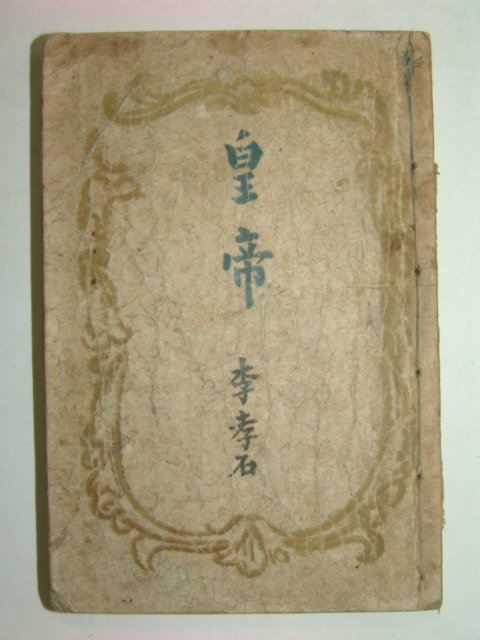 皇帝
李孝石